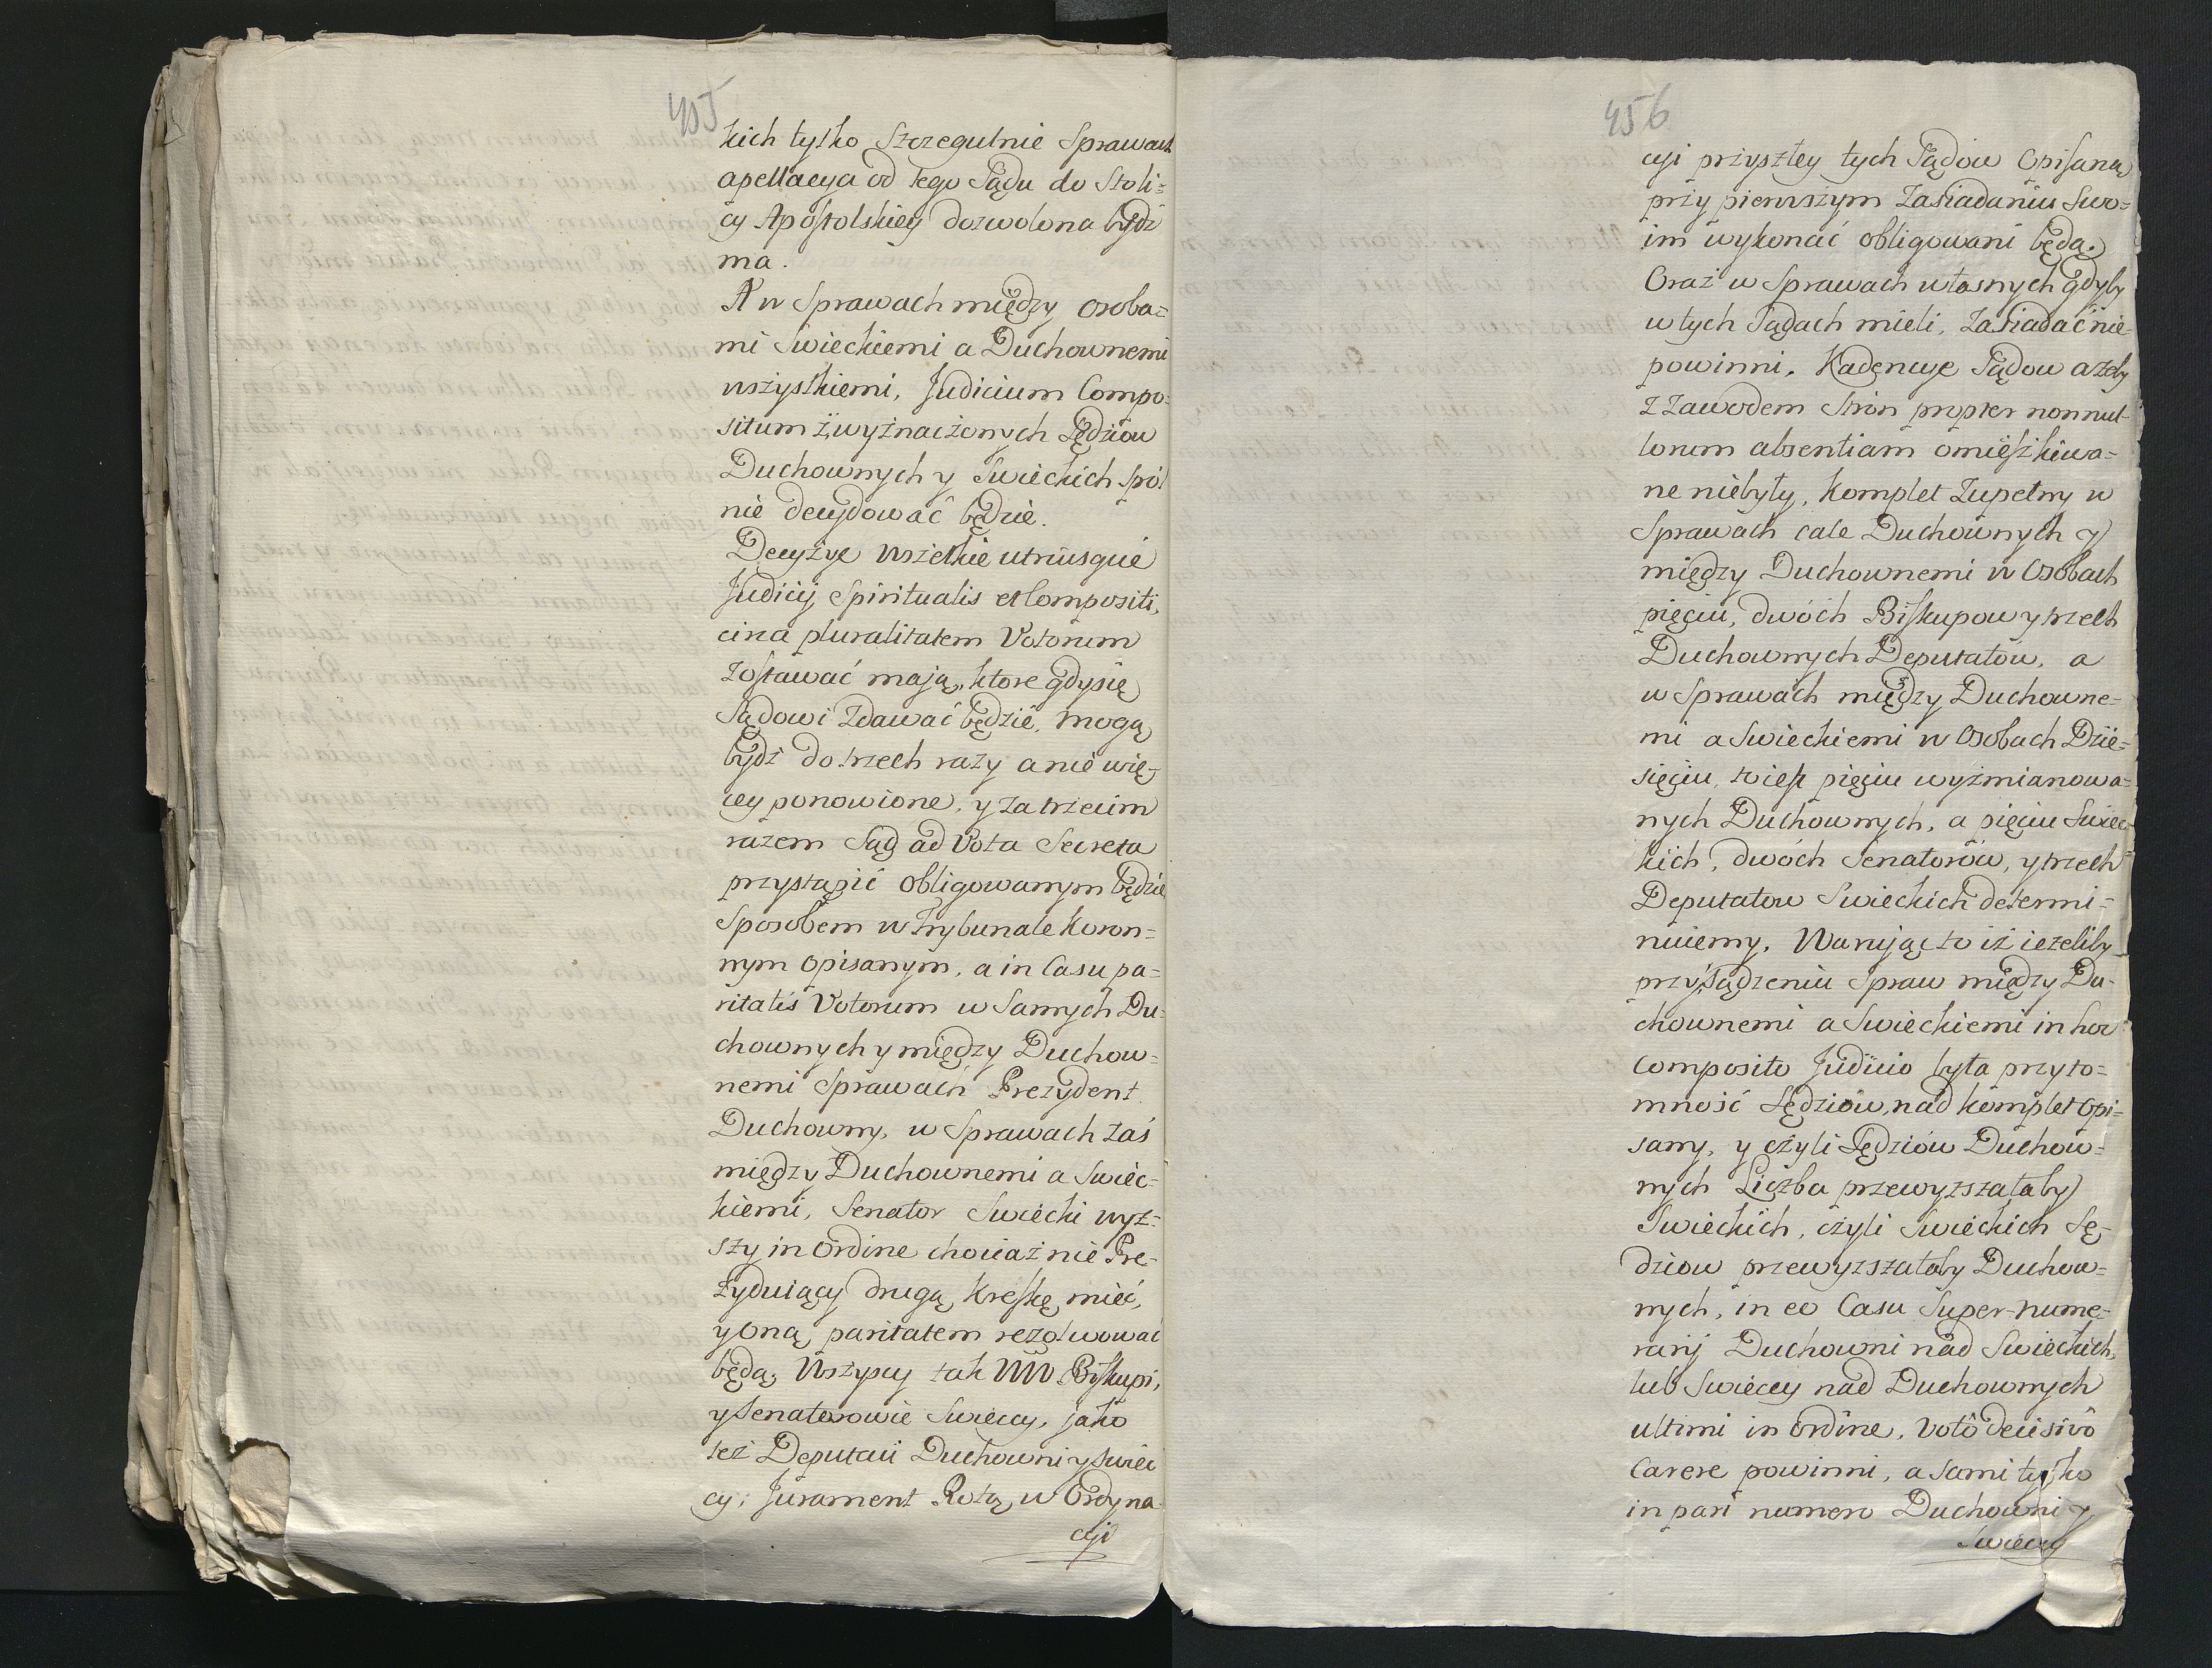 455
kich tylko Szczegulnie Sprawach
apellacya od tego Sądu do Stoli=
cy Apostolskiey dozwolona bydź
ma.
A w Sprawach między osoba=
mi Swieckiemi a Duchownemi
wszystkiemi, Judicium Compo=
situm z wyznaczonych Sędziow
Duchownych y Swieckich spól
nie decydować będzie.
Decyzye wszelkie utriusque
Judicij Spiritualis et Compositi,
circa pluralitatem Votorum
zostawać mają, ktore gdy się
Sądowi zdawać będzie, mogą
bydź do trzech razy a nie wię=
cey ponowione, y za trzecim
razem Sąd ad Vota Secreta
przystąpić obligowanym będzie
Sposobem w Trybunale Koron=
nym opisanym, a in Casu pa=
ritatis Votorum w Samych Du=
chownych y między Duchow=
nemi Sprawach Prezydent
Duchowny, w Sprawach zaś
między Duchownemi a Swiec=
kiemi, Senator Swiecki wyż=
szy in Ordine chociaż nie Pre=
zyduiący drugą kreskę mieć,
y oną paritatem rezolwować
będą, Wszyscy tak WW. Biskupi,
y Senatorowie Swieccy, jako
też Deputaci Duchowni y Swiec
cy, Jurament Rotą w Ordyna=
cyi
456
cyi przyszłey tych Sądow Opisaną
przy pierwszym Zasiadaniu Swo=
im wykonać obligowani będą.
Oraz w Sprawach własnych gdyby
w tych Sądach mieli, zasiadać nie
powinni. Kadencye Sądow azeby
z zawodem Stron propter nonnul=
lorum absentiam omięszkiwa=
ne niebyły, Komplet zupełny w
Sprawach cale Duchownych y
między Duchownemi w Osobach
pięciu, dwóch Biskupow y trzech
Duchownych Deputatow, a
w Sprawach między Duchowne=
mi a Swieckiemi w Osobach Dzie=
sięciu, to iest pięciu wyzmianowa=
nych Duchownych, a pięciu Swiec
kich, dwóch Senatorów, y trzech
Deputatow Swieckich determi=
nuiemy, Waruiąc to iż ieżeliby
przy sądzeniu Spraw między Du=
chownemi a Swieckiemi in hoc
Composito Judicio była przyto=
mność Sędziów, nad Komplet opi=
sany, y czyli Sędziów Duchow=
nych Liczba przewyższałaby
Swieckich, czyli Swieckich Sę=
dziow przewyzszałaby Duchow=
nych, in eo Casu Super-nume=
rarij Duchowni nad Swieckich,
lub Swieccy nad Duchownych
ultimi in Ordine, Votô decisivô
Carere powinni, a sami tylko
in pari numero Duchowni y
Swieccy